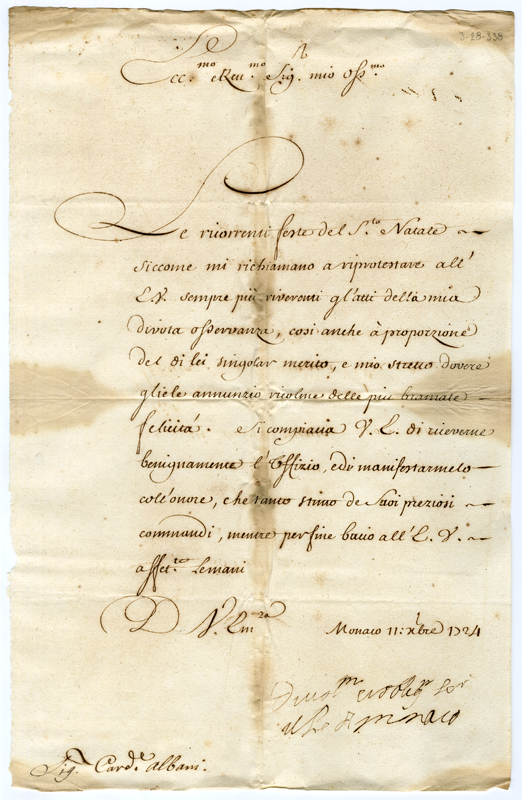 3-28-338
Ecc.mo e Reu.mo Sig.r mio oss.mo
Le ricorrenti feste del S.to Natale
siccome mi richiamano a riprotestare all'
E.V. sempre più riverenti gl'atti della mia
divota osservanza, così anche à proporzione
del di lei singolar merito, e mio stretto dovere
gliele annunzio ricolme delle più bramate
felicitá. e si compiacia V. E. di riceverne
benignamente l'Offizio, e di manifestarmelo
col'onore, che tanto stimo de Suoi preziosi
commandi, mentre per fine bacio all'E. V.
affett.te le mani
D. V. Em.za
Monaco 11: Xbre 1724
Sig.r Card.le Albani.